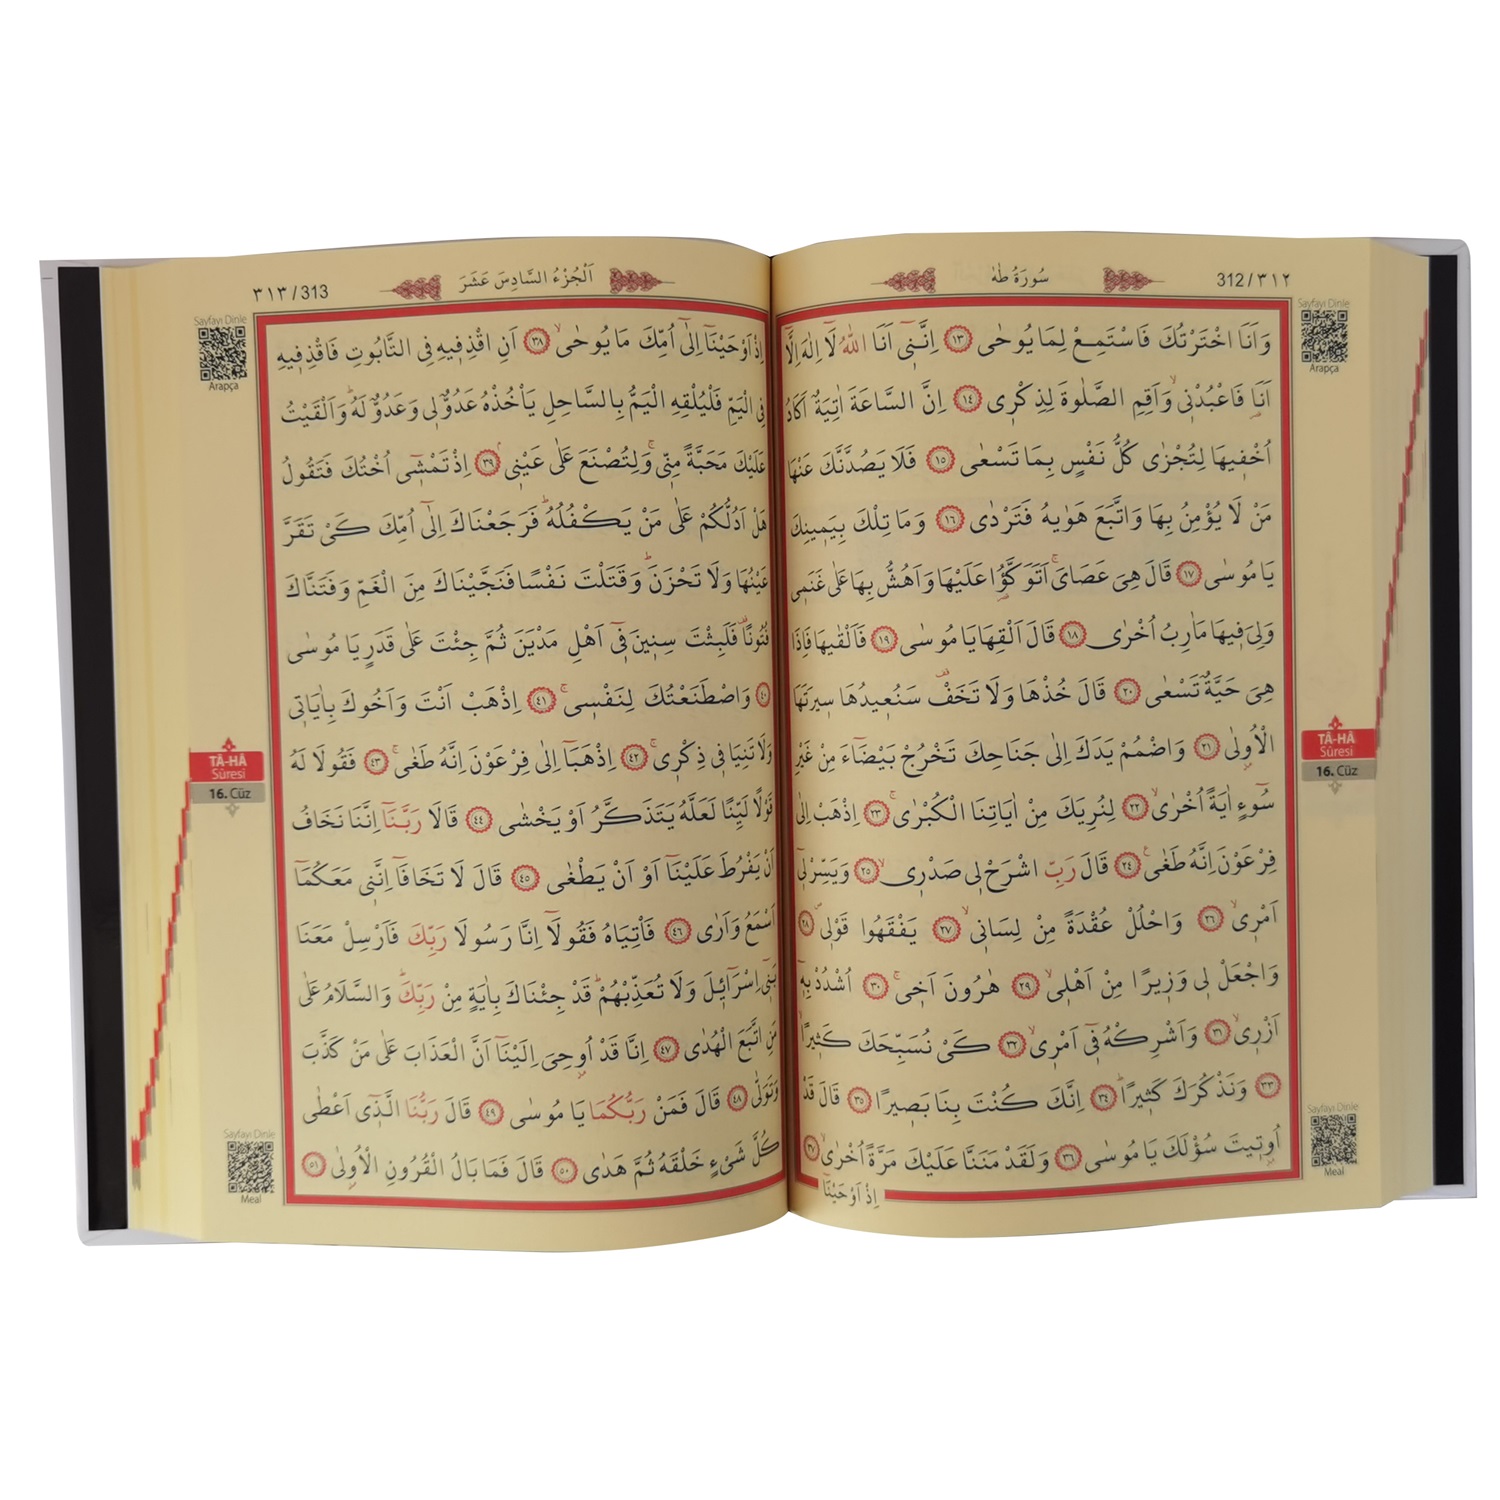 312/٣١٢
سُورَةُ طٰهٰ
Sayfayı Dinle
Arapça
وَاَنَا اخْتَرْتُكَ فَاسْتَمِعْ لِمَا يُوحٰى ١٣ اِنَّن۪ٓي اَنَا اللّٰهُ لَٓا اِلٰهَ اِلَّٓا
اَنَا۬ فَاعْبُدْن۪يۙ وَاَقِمِ الصَّلٰوةَ لِذِكْر۪ي ١٤ اِنَّ السَّاعَةَ اٰتِيَةٌ اَكَادُ
اُخْف۪يهَا لِتُجْزٰى كُلُّ نَفْسٍ بِمَا تَسْعٰى ١٥ فَلَا يَصُدَّنَّكَ عَنْهَا
مَنْ لَا يُؤْمِنُ بِهَا وَاتَّبَعَ هَوٰيهُ فَتَرْدٰى ١٦ وَمَا تِلْكَ بِيَم۪ينِكَ
يَا مُوسٰى ١٧ قَالَ هِيَ عَصَايَۚ اَتَوَكَّؤُ۬ا عَلَيْهَا وَاَهُشُّ بِهَا عَلٰى غَنَم۪ي
وَلِيَ ف۪يهَا مَاٰرِبُ اُخْرٰى ١٨ قَالَ اَلْقِهَا يَا مُوسٰى ١٩ فَاَلْقٰيهَا فَاِذَا
هِيَ حَيَّةٌ تَسْعٰى ٢٠ قَالَ خُذْهَا وَلَا تَخَفْ۠ سَنُع۪يدُهَا س۪يرَتَهَا
الْاُو۫لٰى ٢١ وَاضْمُمْ يَدَكَ اِلٰى جَنَاحِكَ تَخْرُجْ بَيْضَٓاءَ مِنْ غَيْرِ
سُٓوءٍ اٰيَةً اُخْرٰىۙ ٢٢ لِنُرِيَكَ مِنْ اٰيَاتِنَا الْكُبْرٰىۚ ٢٣ اِذْهَبْ اِلٰى
فِرْعَوْنَ اِنَّهُ طَغٰى۟ ٢٤ قَالَ رَبِّ اشْرَحْ ل۪ي صَدْر۪يۙ ٢٥ وَيَسِّرْ ل۪ٓي
اَمْر۪يۙ ٢٦ وَاحْلُلْ عُقْدَةً مِنْ لِسَان۪يۙ ٢٧ يَفْقَهُوا قَوْل۪يۖ ٢٨
وَاجْعَلْ ل۪ي وَز۪يرًا مِنْ اَهْل۪يۙ ٢٩ هٰرُونَ اَخ۪يۚ ٣٠ اُشْدُدْ بِه۪ٓ
اَزْر۪يۙ ٣١ وَاَشْرِكْهُ ف۪ٓي اَمْر۪يۙ ٣٢ كَيْ نُسَبِّحَكَ كَث۪يرًاۙ
٣٣ وَنَذْكُرَكَ كَث۪يرًاۜ ٣٤ اِنَّكَ كُنْتَ بِنَا بَص۪يرًا ٣٥ قَالَ قَدْ
اُو۫ت۪يتَ سُؤْلَكَ يَا مُوسٰى ٣٦ وَلَقَدْ مَنَنَّا عَلَيْكَ مَرَّةً اُخْرٰىۙ ٣٧
اِذْ اَوْحَيْنَٓا
TÂ-HÂ
Sûresi
16. Cüz
Sayfayı Dinle
Meal
٣١٣/313
اَلْجُزْءُ السَّادِسَ عَشَرَ
Sayfayı Dinle
Arapça
اِذْ اَوْحَيْنَٓا اِلٰٓى اُمِّكَ مَا يُوحٰىۙ ٣٨ اَنِ اقْذِف۪يهِ فِي التَّابُوتِ فَاقْذِف۪يهِ
فِي الْيَمِّ فَلْيُلْقِهِ الْيَمُّ بِالسَّاحِلِ يَأْخُذْهُ عَدُوٌّ ل۪ي وَعَدُوٌّ لَهُۜ وَاَلْقَيْتُ
عَلَيْكَ مَحَبَّةً مِنّ۪يۚ وَلِتُصْنَعَ عَلٰى عَيْن۪يۢ ٣٩ اِذْ تَمْش۪ٓي اُخْتُكَ فَتَقُولُ
هَلْ اَدُلُّكُمْ عَلٰى مَنْ يَكْفُلُهُۜ فَرَجَعْنَاكَ اِلٰٓى اُمِّكَ كَيْ تَقَرَّ
عَيْنُهَا وَلَا تَحْزَنَۜ وَقَتَلْتَ نَفْسًا فَنَجَّيْنَاكَ مِنَ الْغَمِّ وَفَتَنَّاكَ
فُتُونًا۠ فَلَبِثْتَ سِن۪ينَ ف۪ٓي اَهْلِ مَدْيَنَ ثُمَّ جِئْتَ عَلٰى قَدَرٍ يَا مُوسٰى
٤٠ وَاصْطَنَعْتُكَ لِنَفْس۪يۚ ٤١ اِذْهَبْ اَنْتَ وَاَخُوكَ بِاٰيَات۪ي
وَلَا تَنِيَا ف۪ي ذِكْر۪يۚ ٤٢ اِذْهَبَٓا اِلٰى فِرْعَوْنَ اِنَّهُ طَغٰىۚ ٤٣ فَقُولَا لَهُ
قَوْلًا لَيِّنًا لَعَلَّهُ يَتَذَكَّرُ اَوْ يَخْشٰى ٤٤ قَالَا رَبَّنَٓا اِنَّنَا نَخَافُ
اَنْ يَفْرُطَ عَلَيْنَٓا اَوْ اَنْ يَطْغٰى ٤٥ قَالَ لَا تَخَافَٓا اِنَّن۪ي مَعَكُمَٓا
اَسْمَعُ وَاَرٰى ٤٦ فَأْتِيَاهُ فَقُولَٓا اِنَّا رَسُولَا رَبِّكَ فَاَرْسِلْ مَعَنَا
بَن۪ٓي اِسْرَٓائ۪لَ وَلَا تُعَذِّبْهُمْۜ قَدْ جِئْنَاكَ بِاٰيَةٍ مِنْ رَبِّكَۜ وَالسَّلَامُ عَلٰى
مَنِ اتَّبَعَ الْهُدٰى ٤٧ اِنَّا قَدْ اُو۫حِيَ اِلَيْنَٓا اَنَّ الْعَذَابَ عَلٰى مَنْ كَذَّبَ
وَتَوَلّٰى ٤٨ قَالَ فَمَنْ رَبُّكُمَا يَا مُوسٰى ٤٩ قَالَ رَبُّنَا الَّذ۪ٓي اَعْطٰى
كُلَّ شَيْءٍ خَلْقَهُ ثُمَّ هَدٰى ٥٠ قَالَ فَمَا بَالُ الْقُرُونِ الْاُو۫لٰى ٥١
TÂ-HÂ
Sûresi
16. Cüz
Sayfayı Dinle
Meal